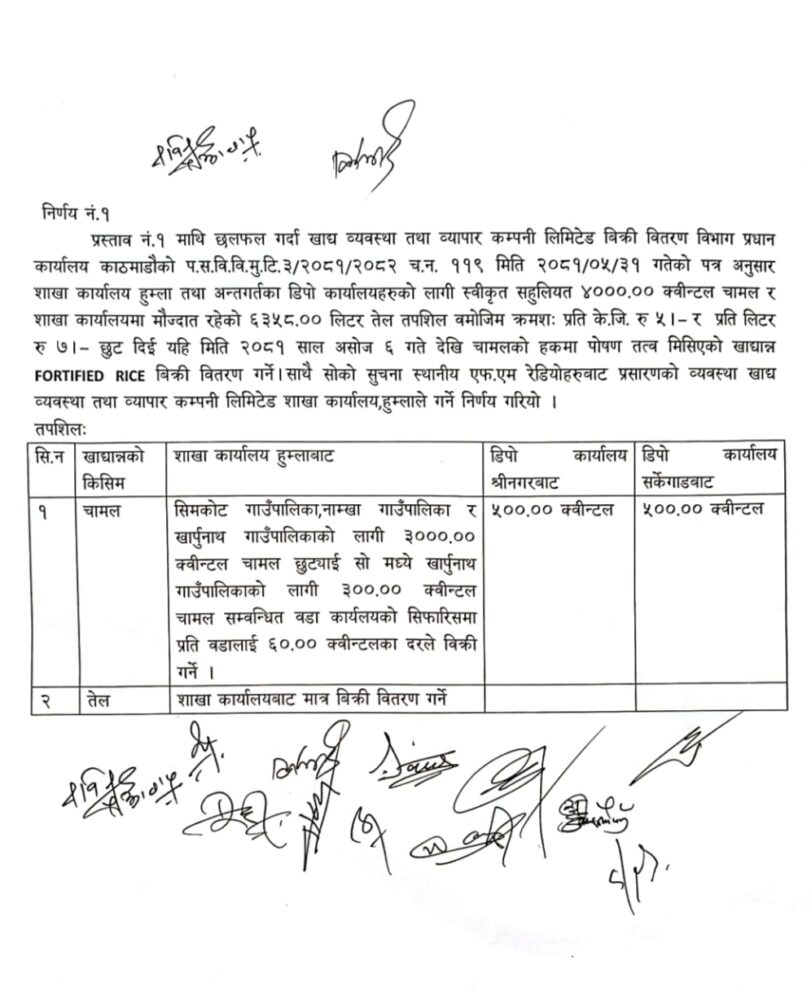 निर्णय नं.१
प्रस्ताव नं.१ माथि छलफल गर्दा खाद्य व्यवस्था तथा व्यापार कम्पनी लिमिटेड बिक्री वितरण विभाग प्रधान
कार्यालय काठमाडौको प.स.वि.वि.मु.टि.३/२०८१/२०८२ च.न. ११९ मिति २०८१/०५/३१ गतेको पत्र अनुसार
शाखा कार्यालय हुम्ला तथा अन्तगर्तका डिपो कार्यालयहरुको लागी स्वीकृत सहुलियत ४०००.०० क्वीन्टल चामल र
शाखा कार्यालयमा मौज्दात रहेको ६३५८.०० लिटर तेल तपशिल वमोजिम क्रमशः प्रति के.जि. रु ५।– र प्रति लिटर
रु ७।– छुट दिई यहि मिति २०८१ साल असोज ६ गते देखि चामलको हकमा पोषण तत्व मिसिएको खाद्यान्न
FORTIFIED RICE बिक्री वितरण गर्ने।साथै सोको सुचना स्थानीय एफ.एम रेडियोहरुबाट प्रसारणको व्यवस्था खाद्य
व्यवस्था तथा व्यापार कम्पनी लिमिटेड शाखा कार्यालय,हुम्लाले गर्ने निर्णय गरियो ।
तपशिलः
सि.न खाद्यान्नको किसिम शाखा कार्यालय हुम्लाबाट डिपो कार्यालय श्रीनगरबाट डिपो कार्यालय सर्केगाडबाट
१ चामल सिमकोट गाउँपालिका,नाम्खा गाउँपालिका र ५००.०० क्वीन्टल ५००.०० क्वीन्टल
खार्पुनाथ गाउँपालिकाको लागी ३०००.००
क्वीन्टल चामल छुट्याई सो मध्ये खार्पुनाथ
गाउँपालिकाको लागी ३००.०० क्वीन्टल
चामल सम्वन्धित वडा कार्यलयको सिफारिसमा
प्रति वडालाई ६०.०० क्वीन्टलका दरले विक्री
गर्ने ।
२ तेल शाखा कार्यालयबाट मात्र बिक्री वितरण गर्ने